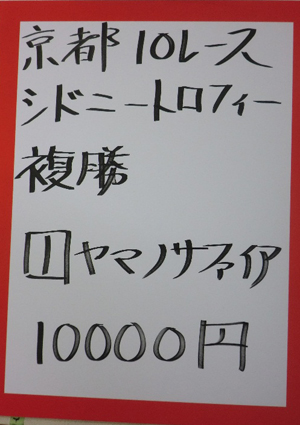 京都10レース
シドニートロフィー
複勝
1 ヤマノサファイア
10000円